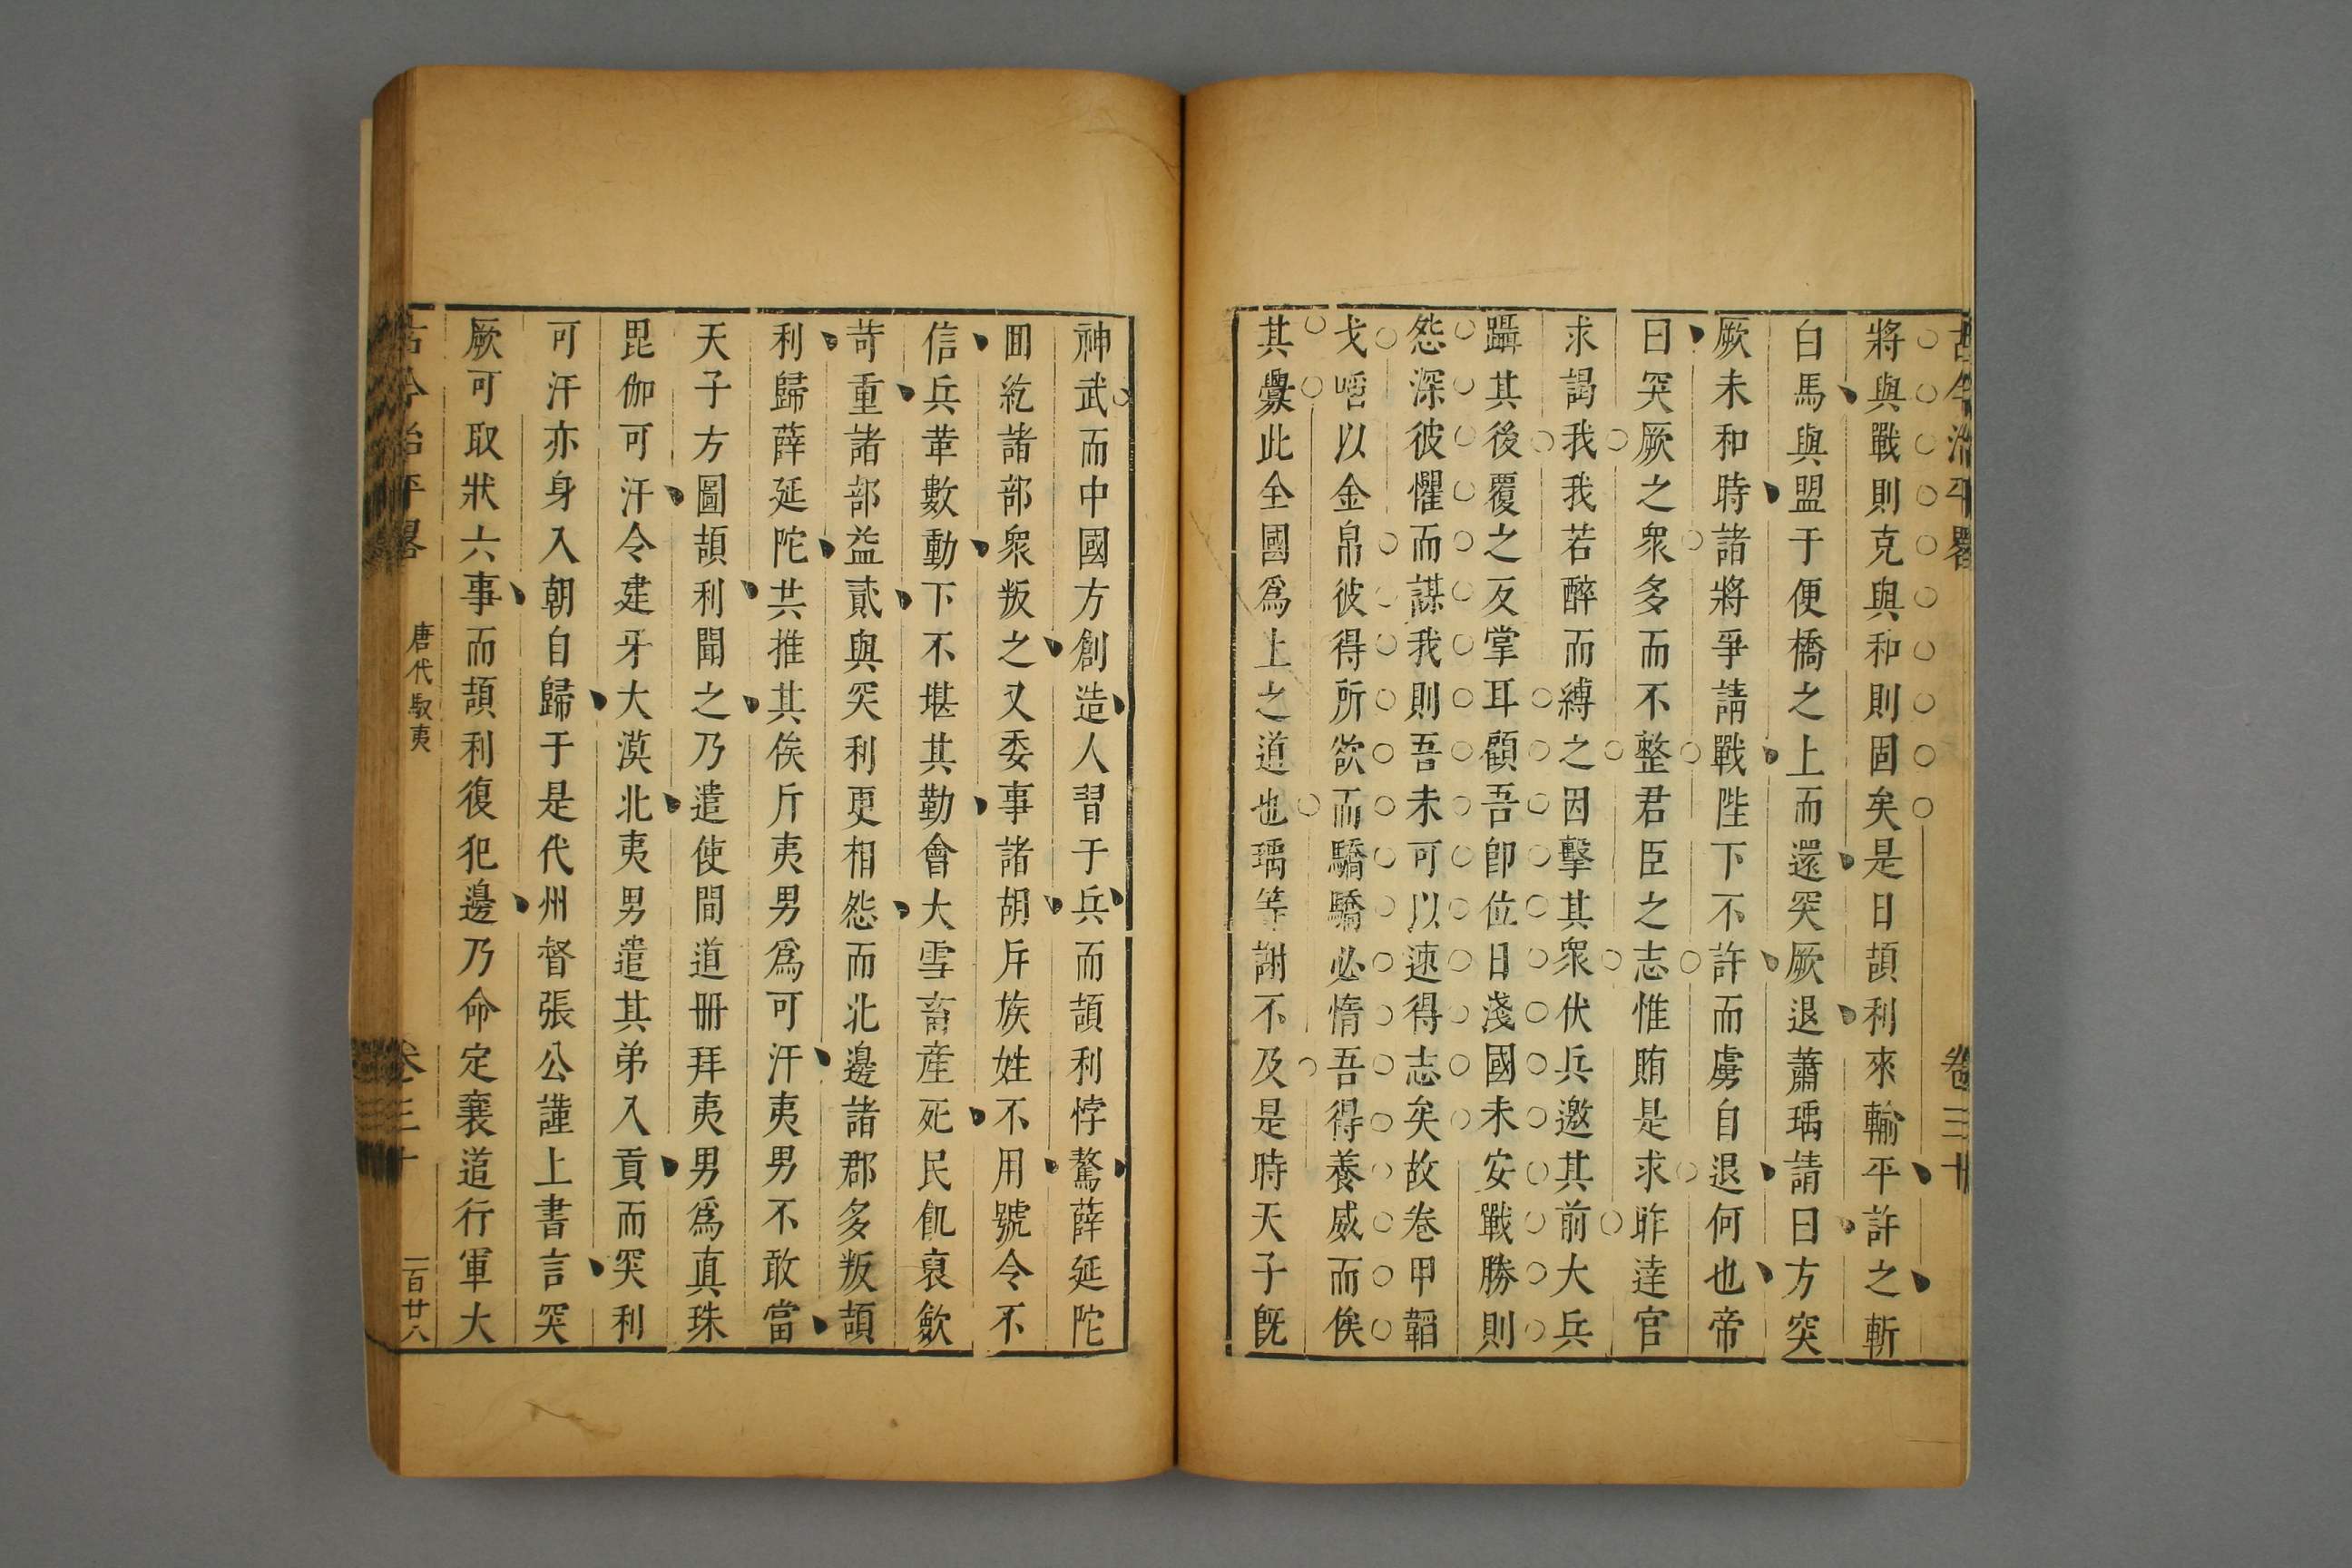 古今治平畧
卷三十
將與戰則克與和則固矣是日頡利來輸平許之斬
白馬與盟于便橋之上而還突厥退蕭瑀請曰方突
厥未和時諸將爭請戰陛下不許而虜自退何也帝
曰突厥之衆多而不整君臣之志惟賄是求昨達官
求謁我我若醉而縛之因擊其衆伏兵邀其前大兵
躡其後覆之反掌耳顧吾卽位日淺國未安戰勝則
怨深彼懼而謀我則吾未可以速得志矣故卷甲韜
戈啗以金帛彼得所欲而驕驕必惰吾得養威而俟
其釁此全國爲上之道也瑀等謝不及是時天子旣
神武而中國方創造人習于兵而頡利悖驁薛延陀
囬紇諸部衆叛之又委事諸胡斥族姓不用號令不
信兵革數動下不堪其勤會大雪畜產死民飢裒歛
苛重諸部益貳與突利更相怨而北邊諸郡多叛頡
利歸薛延陀共推其俟斤夷男爲可汗夷男不敢當
天子方圖頡利聞之乃遣使間道冊拜夷男爲真珠
毘伽可汗令建牙大漠北夷男遣其弟入貢而突利
可汗亦身入朝自歸于是代州督張公謹上書言突
厥可取狀六事而頡利復犯邊乃命定襄道行軍大
古今治平畧
唐代馭夷
卷三十
一百廿八